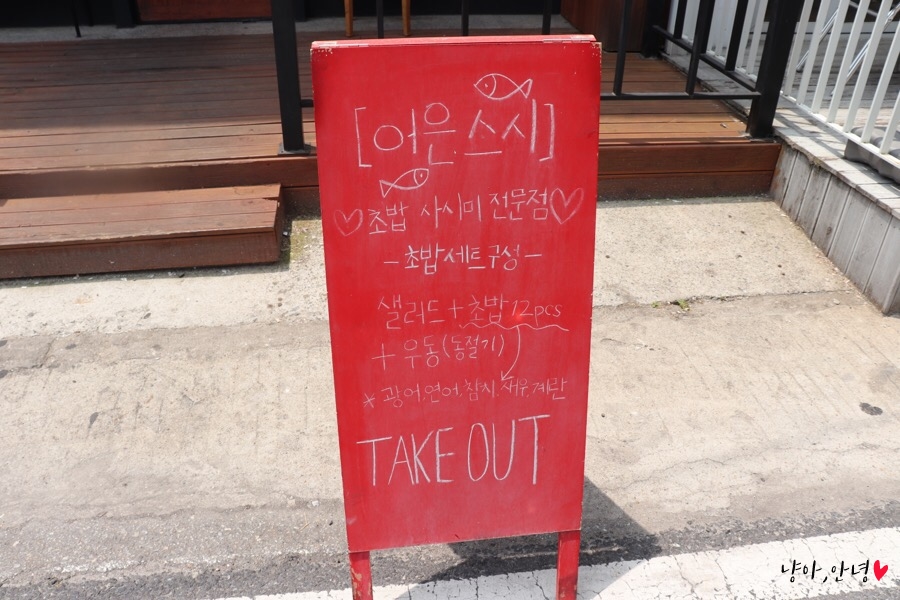 [어은.스시]
♡초밥 사시미 전문점♡
-초밥세트구성-
샐러드+초밥 12pcs
+우동(동절기)
*광어,연어,참치,새우,계란
TAKE OUT
냥아,안녕♥